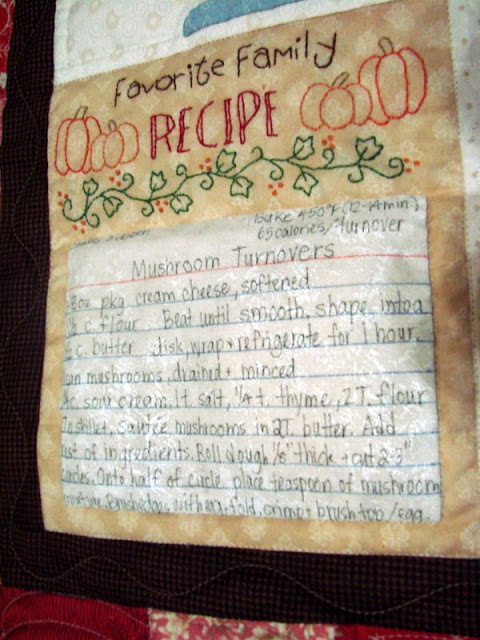 Favorite Family
RECIPE
Bake 450°F (12-14 min)
65 calories/turnover
Mushroom Turnovers
8 oz pkg cream cheese, softened
c. flour Beat until smooth, shape into a
c. butter disk, wrap + refrigerate for 1 hour.
mushrooms, drained + minced
c. sour cream, 1t. salt, 1/4 t. thyme, 2 T. flour
skillet, sautee mushrooms in 2T. butter. Add
rest of ingredients. Roll dough 1/8" thick + cut 2-3"
circles. Onto half of circle place teaspoon of mushroom
mixture. Brush edges with egg, fold, crimp + brush top / egg.